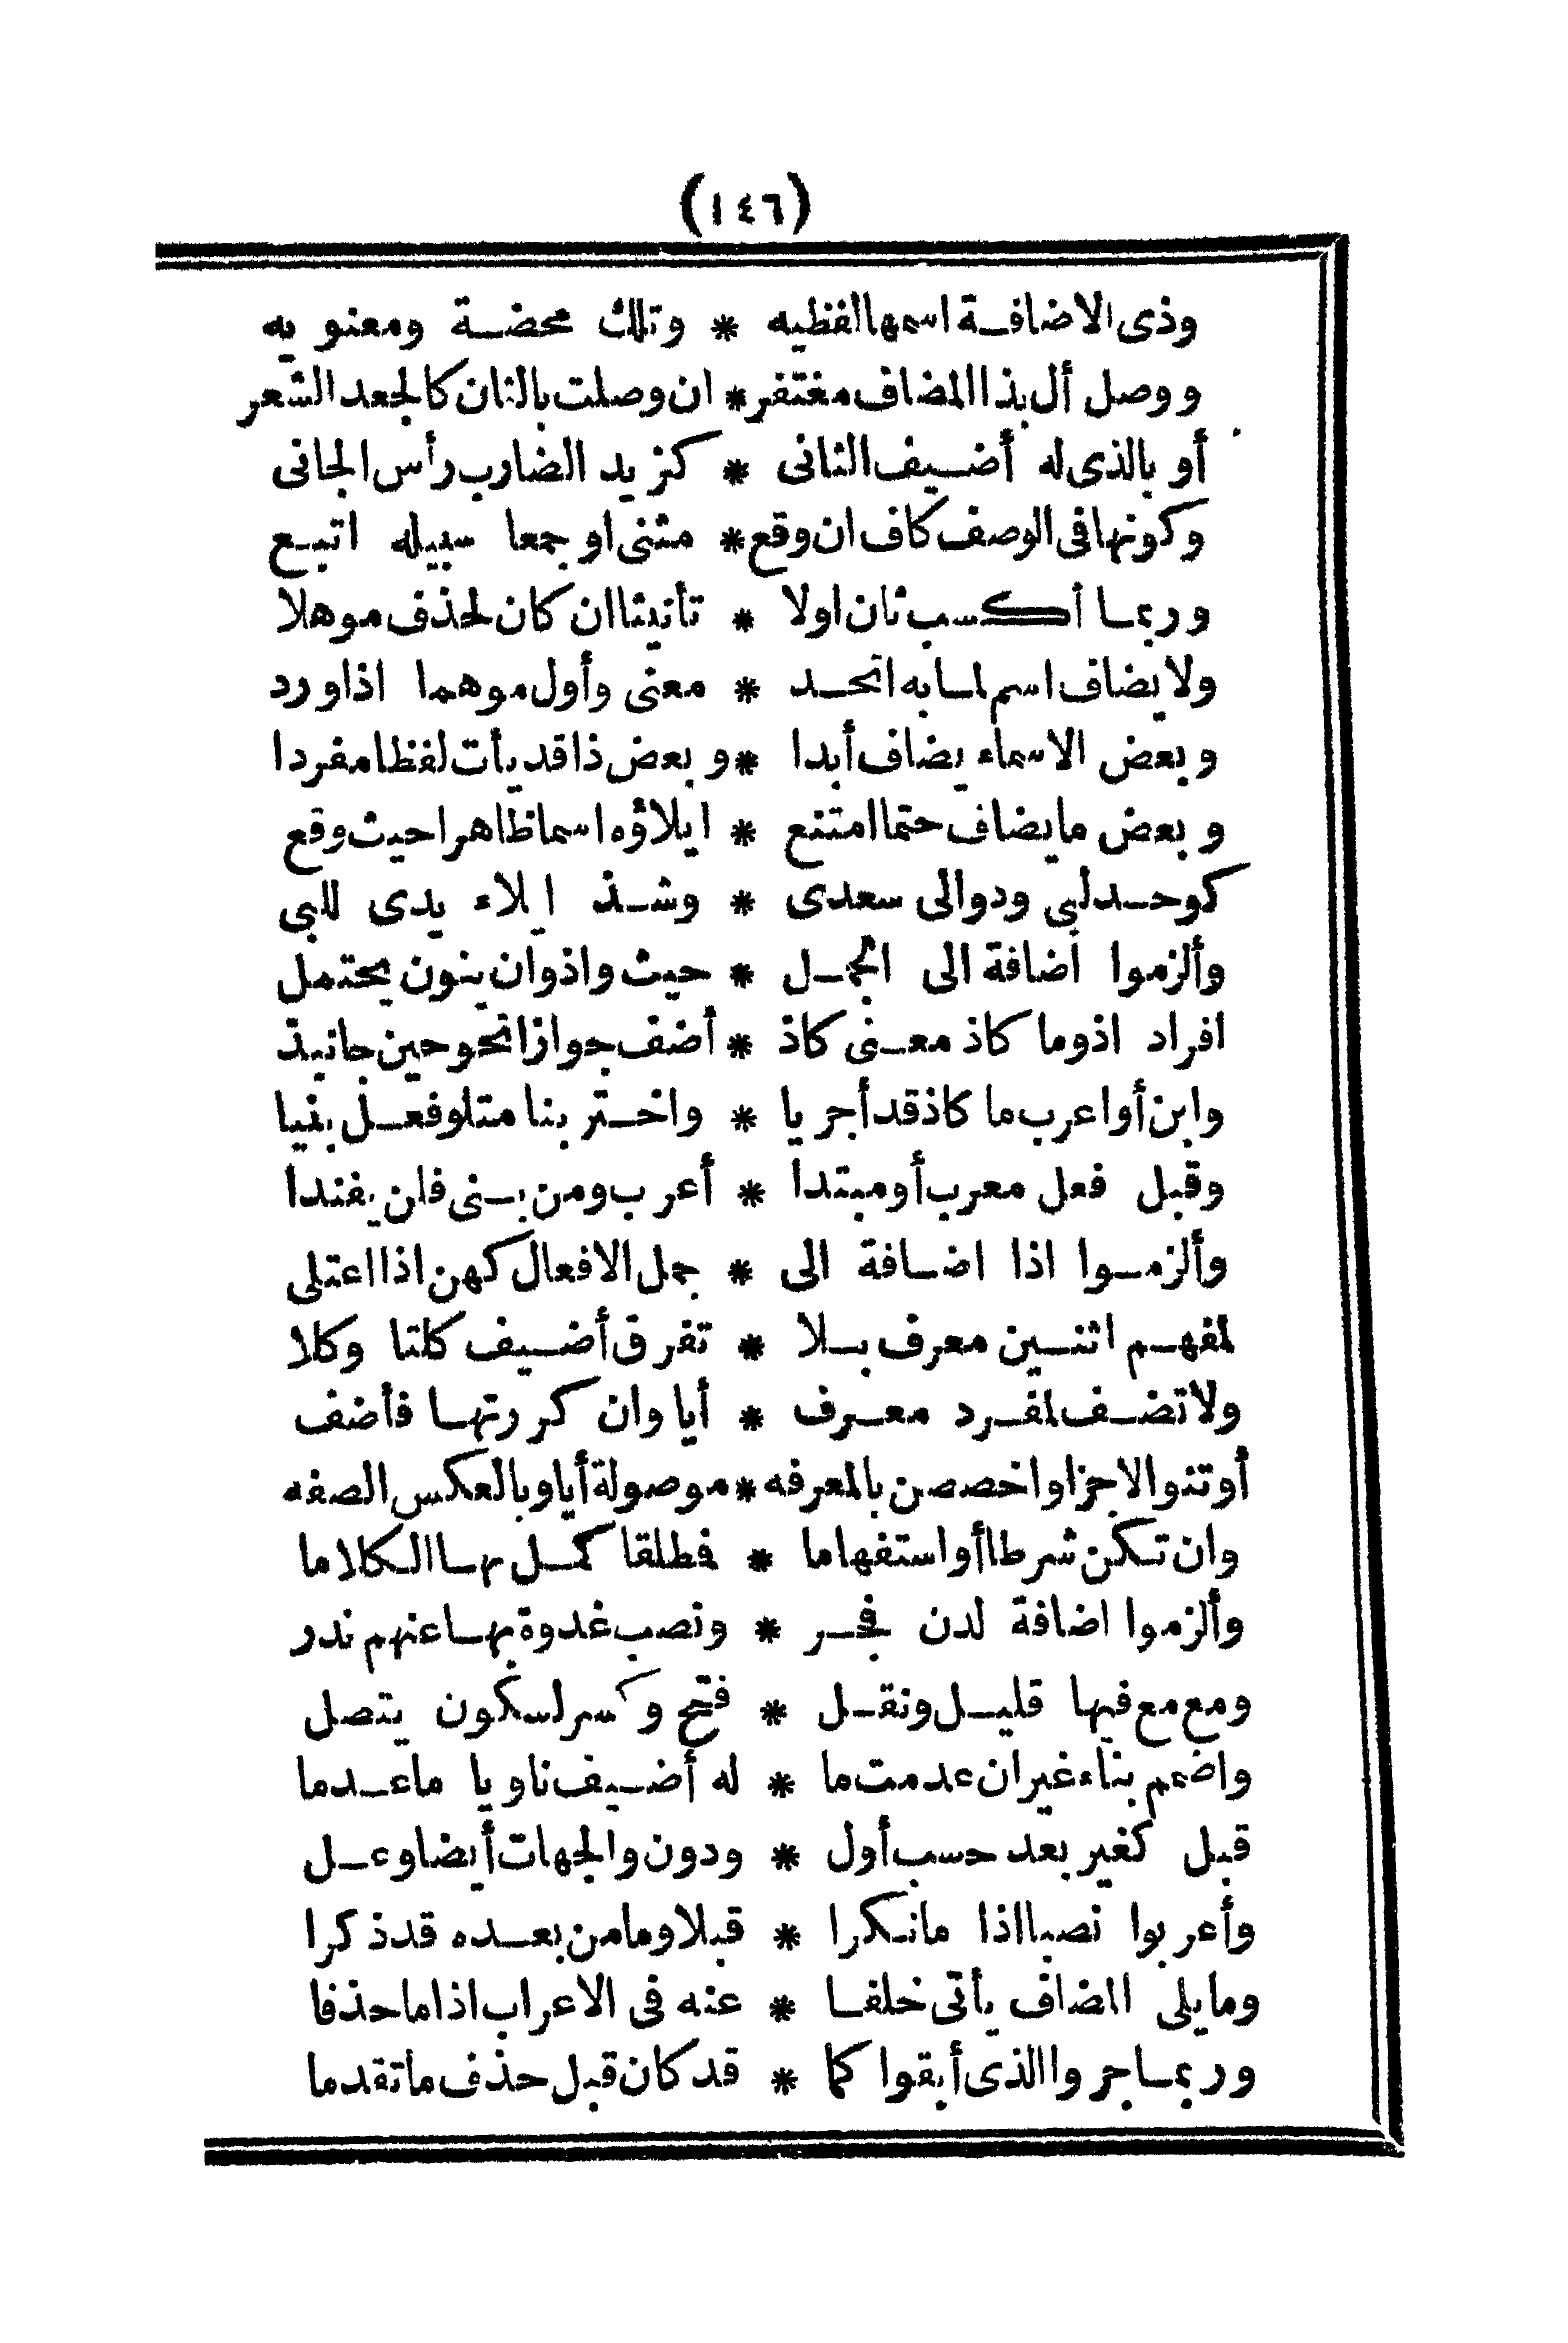 (١٤٦)
وذى الاضافة اسمها لفظيه * وتلك محضة ومعنويه
ووصل أل بذا المضاف مغتفر * ان وصلت بالثان كالجعد الشعر
أو بالذى له أضيف الثانى * كزيد الضارب رأس الجانى
وكونها فى الوصف كاف ان وقع * مثنى او جمعا سبيله اتبع
وربما أكسب ثان اولا * تأنيثا ان كان لحذف موهلا
ولا يضاف اسم لما به اتحد * معنى وأول موهما اذا ورد
وبعض الاسماء يضاف أبدا * وبعض ذا قد يأت لفظا مفردا
وبعض ما يضاف حتما امتنع * ايلاؤه اسما ظاهرا حيث وقع
كوحد لبى ودوالى سعدى * وشذ ايلاء يدى للبى
وألزموا اضافة الى الجمل * حيث واذ وان ينون يحتمل
افراد اذ وما كاذ معنى كاذ * أضف جوازا نحو حين جا نبذ
وابن أو اعرب ما كاذ قد أجريا * واختر بنا متلو فعل بنيا
وقبل فعل معرب أو مبتدا * أعرب ومن بنى فلن يفندا
وألزموا اذا اضافة الى * جمل الافعال كهن اذا اعتلى
لمفهم اثنين معرف بلا * تفرق أضيف كلتا وكلا
ولا تضف لمفرد معرف * أيا وان كررتها فأضف
أو تنو الاجزا واخصصن بالمعرفه * موصولة أيا وبالعكس الصفه
وان تكن شرطا أو استفهاما * فطلقا كمل بها الكلاما
وألزموا اضافة لدن فجر * ونصب غدوة بها عنهم ندر
ومع مع فيها قليل ونقل * فتح وكسر لسكون يتصل
واضمم بناء غير ان عدمت ما * له أضيف ناويا ما عدما
قبل كغير بعد حسب أول * ودون والجهات أيضا وعل
وأعربوا نصبا اذا ما نكرا * قبلا وما من بعده قد ذكرا
وما يلى المضاف يأتى خلفا * عنه فى الاعراب اذا ما حذفا
وربما جروا الذى أبقوا كما * قد كان قبل حذف ما تقدما